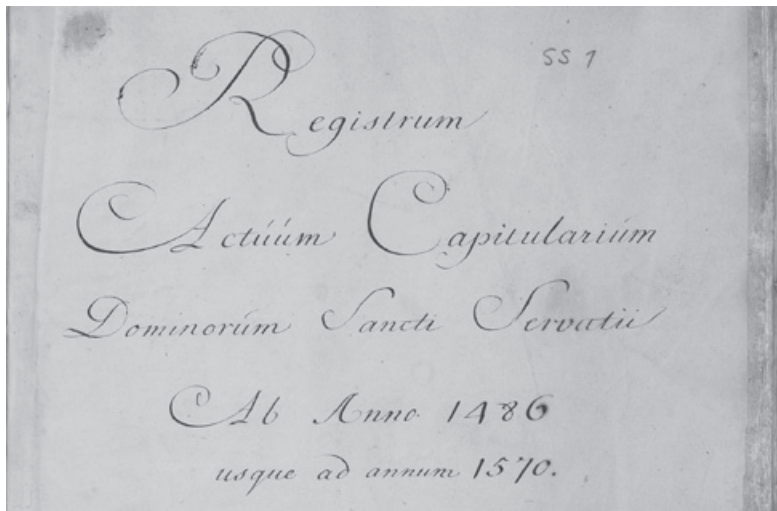 SS 1
Registrum
Actúúm Capitulariúm
Dominorúm Sancti Servatii
Ab Anno 1486
usque ad annum 1570.